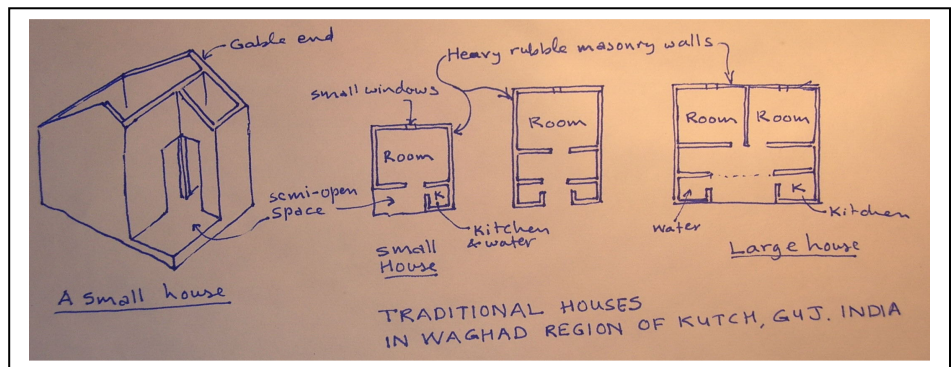 Gable end
Heavy rubble masonry walls
small windows
Room
Room
Room
Room
semi-open
space
K
K
Kitchen
& water
water
Kitchen
small
House
Large house
A small house
TRADITIONAL HOUSES
IN WAGHAD REGION OF KUTCH, GUJ. INDIA